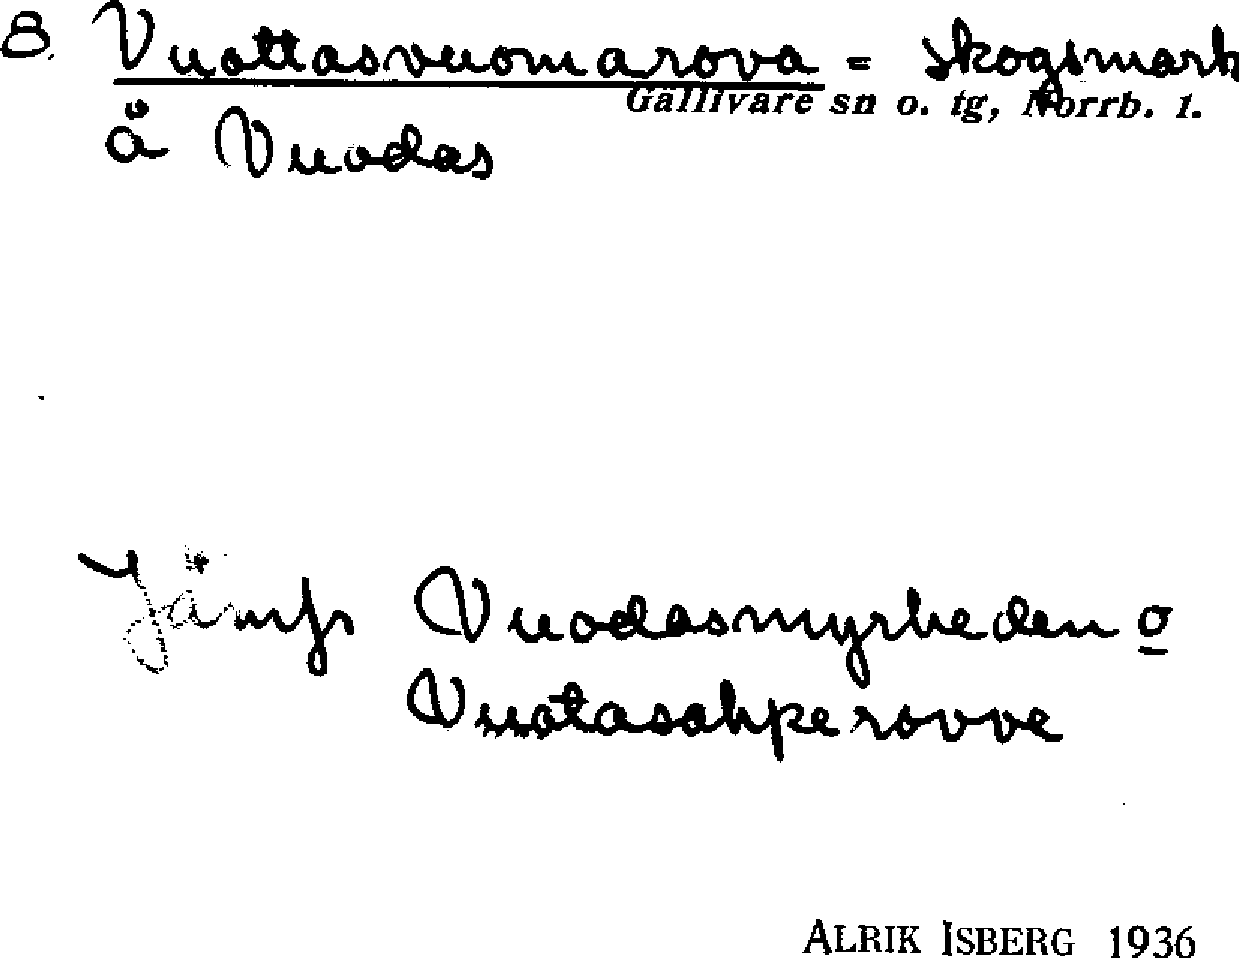 B. Vuottasvuomarova = skogsmark
Gällivare sn o. tg, Norrb. l.
å Vuodas
Jämför Vuodasmyrheden o
Vuotasahpe rovve
ALRIK ISBERG 1936